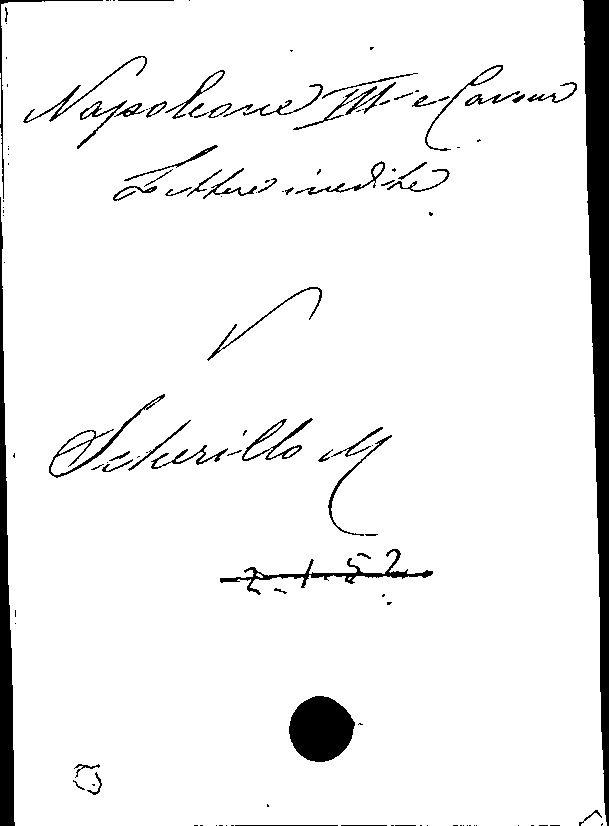 Napoleone III e Cavour
Lettere inedite
V
Scherillo M
2-1-52